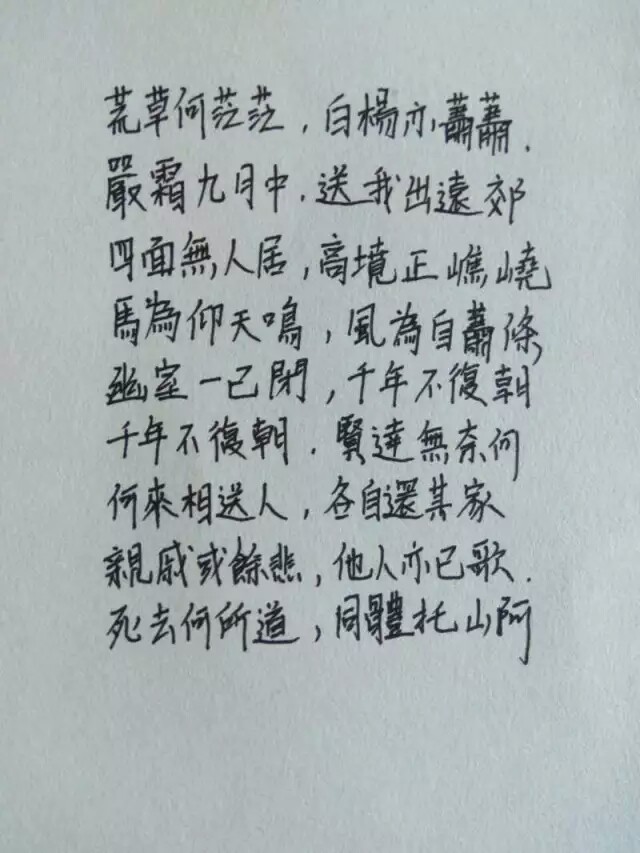 荒草何茫茫，白楊亦蕭蕭．
嚴霜九月中．送我出遠郊
四面無人居，高境正嶕嶢
馬為仰天鳴，風為自蕭條，
幽室一已閉，千年不復朝
千年不復朝．賢達無奈何
何來相送人，各自還其家
親戚或餘悲，他人亦已歌．
死去何所道，同體托山阿